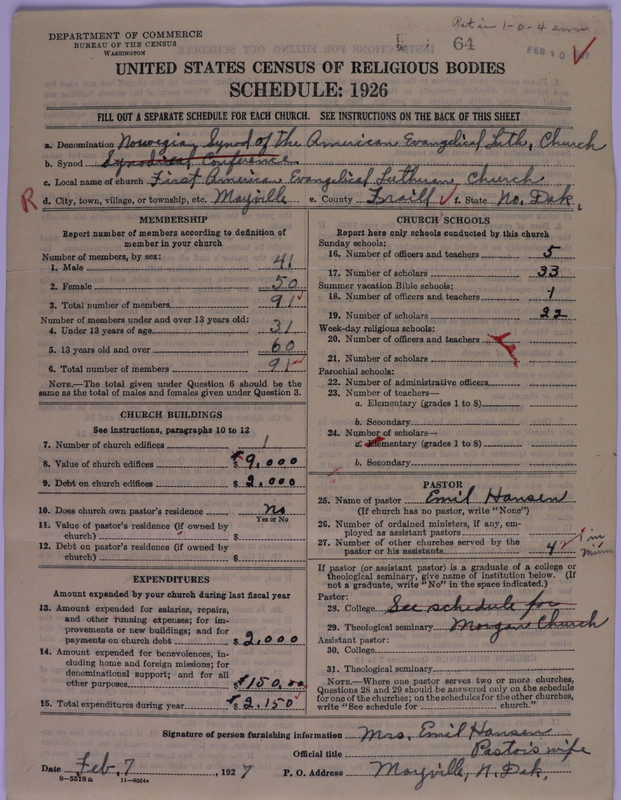 Ret in 1-0-4
DEPARTMENT OF COMMERCE
BUREAU OF THE CENSUS
WASHINGTON
64
FEB 10
UNITED STATES CENSUS OF RELIGIOUS BODIES
SCHEDULE: 1926
FILL OUT A SEPARATE SCHEDULE FOR EACH CHURCH. SEE INSTRUCTIONS ON THE BACK OF THIS SHEET
a. Denomination Norwegian Synod of the American Evangelical Luth. Church
b. Synod Synodical Conference
c. Local name of church First American Evangelical Lutheran Church
R d. City, town, village, or township, etc. Mayville e. County Traill f. State No. Dak.
MEMBERSHIP
Report number of members according to definition of member in your church
Number of members, by sex:
1. Male 41
2. Female 50
3. Total number of members 91
Number of members under and over 13 years old:
4. Under 13 years of age 31
5. 13 years old and over 60
6. Total number of members 91
NOTE.—The total given under Question 6 should be
same as the total of males and females given under Question 3.
CHURCH BUILDINGS
See instructions, paragraphs 10 to 12
7. Number of church edifices 1
8. Value of church edifices $ 9,000
9. Debt on church edifices $ 2,000
10. Does church own pastor's residence no
Yes or No
11. Value of pastor's residence (if owned by
church) $
12. Debt on pastor's residence (if owned by
church) $
EXPENDITURES
Amount expended by your church during last fiscal year
13. Amount expended for salaries, repairs,
and other running expenses; for im-
provements or new buildings; and for
payments on church debt $ 2,000
14. Amount expended for benevolences, in-
cluding home and foreign missions; for
denominational support; and for all
other purposes $ 150.00
15. Total expenditures during year $ 2,150
CHURCH SCHOOLS
Report here only schools conducted by this church
Sunday schools:
16. Number of officers and teachers 5
17. Number of scholars 33
Summer vacation Bible schools:
18. Number of officers and teachers 1
19. Number of scholars 22
Week-day religious schools:
20. Number of officers and teachers
21. Number of scholars
Parochial schools:
22. Number of administrative officers
23. Number of teachers—
a. Elementary (grades 1 to 8)
b. Secondary
24. Number of scholars—
a. Elementary (grades 1 to 8)
b. Secondary
PASTOR
25. Name of pastor Emil Hansen
(If church has no pastor, write "None")
26. Number of ordained ministers, if any, em-
ployed as assistant pastors
27. Number of other churches served by the
pastor or his assistants 4 1 in Minn
If pastor (or assistant pastor) is a graduate of a college or
theological seminary, give name of institution below. (If
not a graduate, write "No" in the space indicated.)
Pastor:
28. College See schedule for
29. Theological seminary Morgan Church
Assistant pastor:
30. College
31. Theological seminary
NOTE.—Where one pastor serves two or more churches,
Questions 28 and 29 should be answered only on the schedule
for one of the churches; on the schedules for the other churches,
write "See schedule for church."
Signature of person furnishing information Mrs. Emil Hansen
Official title Pastor's wife
Date Feb. 7, 1927 P. O. Address Mayville, N. Dak.
8-5518a 11-4054a